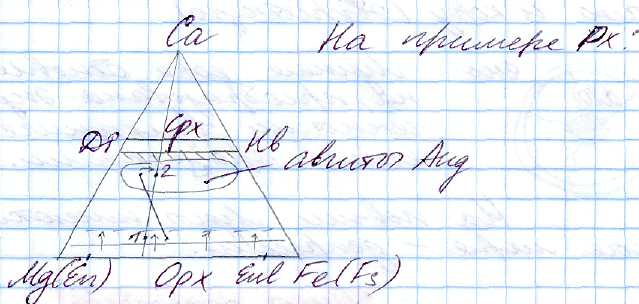 Ca
На примере Px:
Cpx
Di
Hb
авгиты Aug
2
1
Mg(En)
Opx
Fe(Fs)